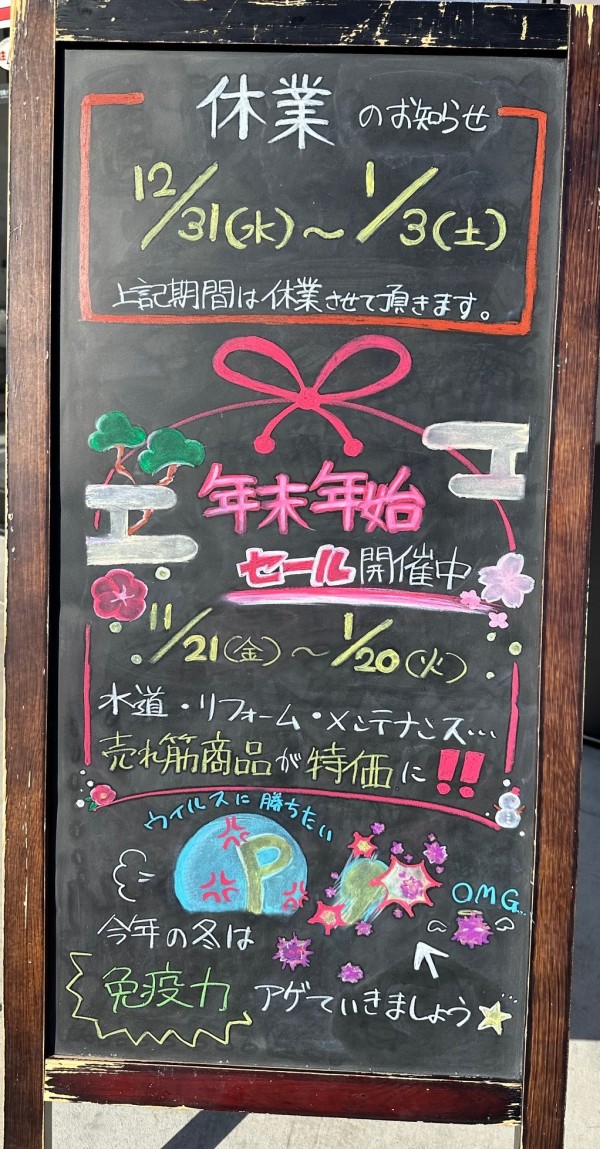 休業のお知らせ
12/31(水)～1/3(土)
上記期間は休業させて頂きます。
年末年始
セール開催中
11/21(金)～1/20(火)
水道・リフォーム・メンテナンス…
売れ筋商品が特価に!!
ウイルスに勝ちたい
P
OMG...
今年の冬は
免疫力アゲていきましょう